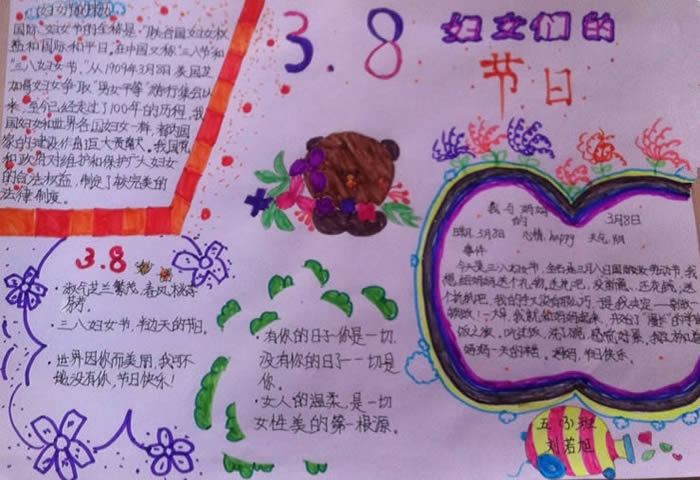 妇女节的由来
国际妇女节的全称是："联合国妇女权
益和国际和平日，在中国又称"三八节和
"三八妇女节。"从1909年3月8日美国芝
加哥妇女争取"男女平等"游行集会以
来，至今已经走过了100年的历程。我
国妇女和世界各国妇女一样，都为国
家的建设作出巨大贡献。我国党
和政府对维护和保护广大妇女
的合法权益，制定了较完美的
法律制度。
3.8
妇女们的
节日
3.8
淑气芝兰繁茂，春风桃李
芬芳。
三八妇女节，半边天的节日。
世界因你而美丽，我可不
能没有你，节日快乐！
有你的日子你是一切，
没有你的日子一切是
你。
女人的温柔，是一切
女性美的第一根源。
我与妈妈的
3月8日
日期：3月8日 心情：happy 天气：阴
事件
今天是三八妇女节，全名是三月八日国际妇女劳动节，我
想给妈妈送个礼物，送花吧，没新意，还花钱，送
个
妈妈一天的辛苦。妈妈，节日快乐。
五(3)班
刘若旭